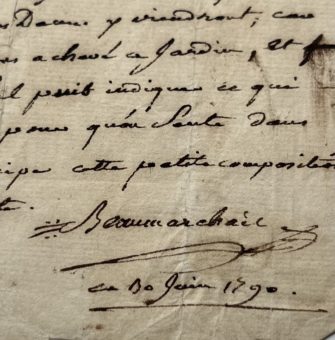 Dames y viendront; car
achevé ce Jardin, et
puit indiquer ce qui
pour qu'on Sente dans
cette petite composition
Beaumarchais
ce 30 Juin 1790.